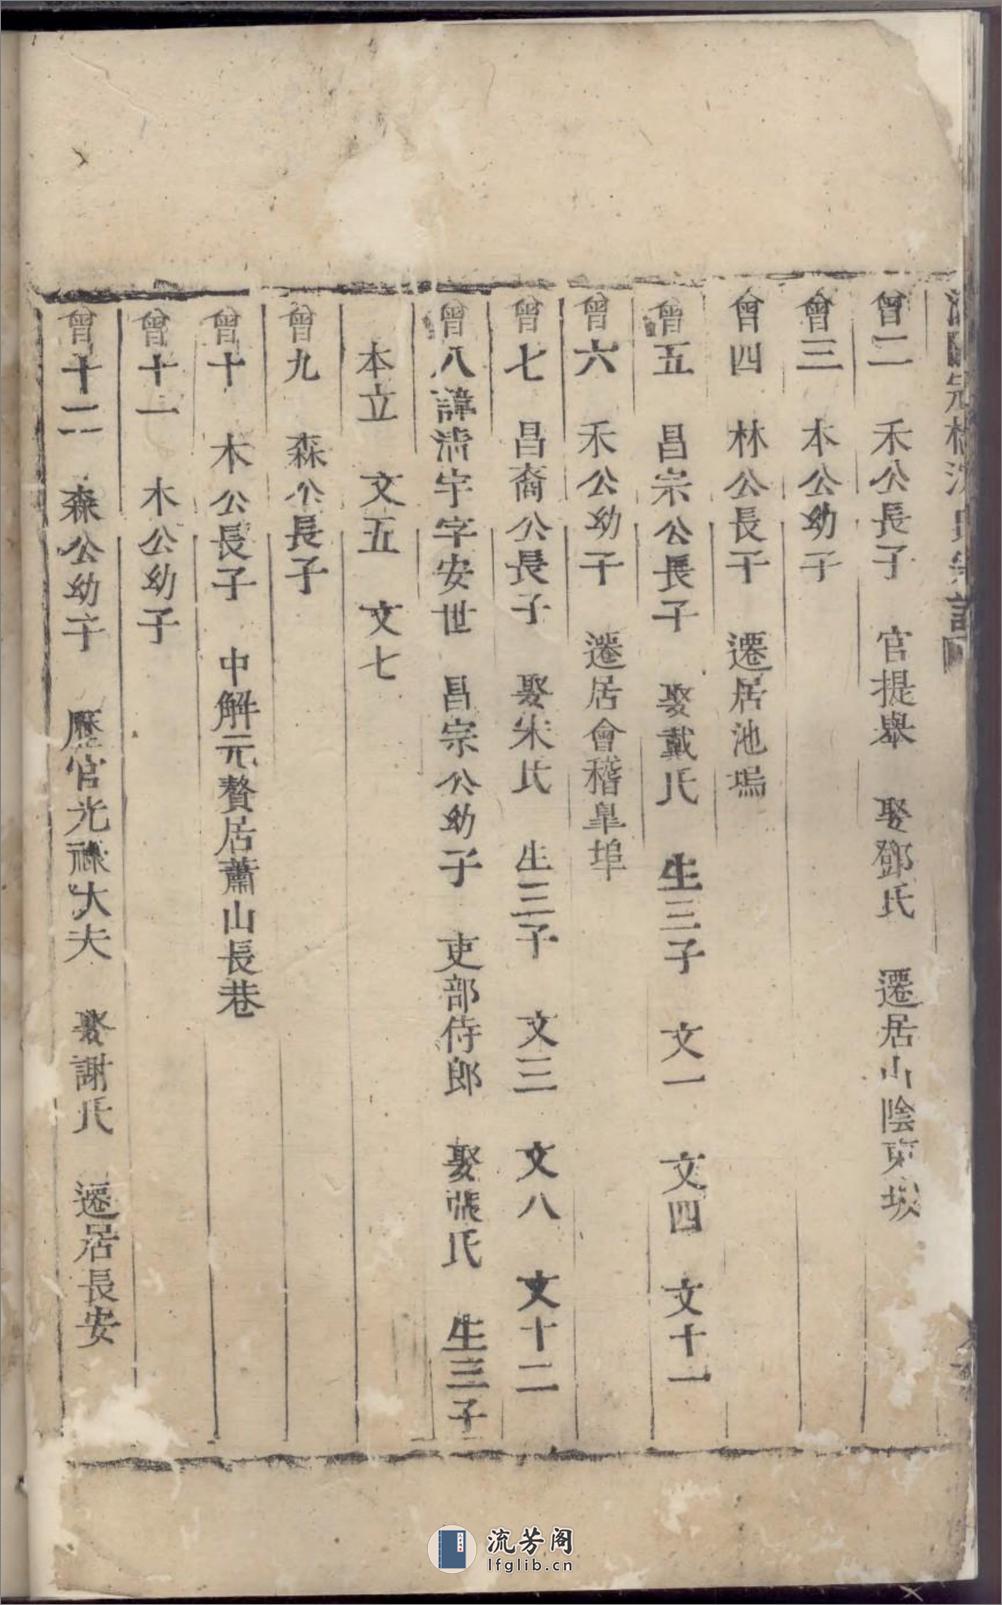 曾二 禾公長子 官提舉 娶鄧氏 遷居山陰東㘰
曾三 本公幼子
曾四 林公長子 遷居池塢
曾五 昌宗公長子 娶戴氏 生三子 文一 文四 文十一
曾六 禾公幼子 遷居會稽臯埠
曾七 昌裔公長子 娶朱氏 生三子 文三 文八 文十二
曾八諱淸宇字安世 昌宗公幼子 吏部侍郎 娶張氏 生三子
本立 文五 文七
曾九 森公長子
曾十 木公長子 中解元贅居蕭山長巷
曾十一 木公幼子
曾十二 森公幼子 歷官光祿大夫 娶謝氏 遷居長安
流芳阁
lfglib.cn